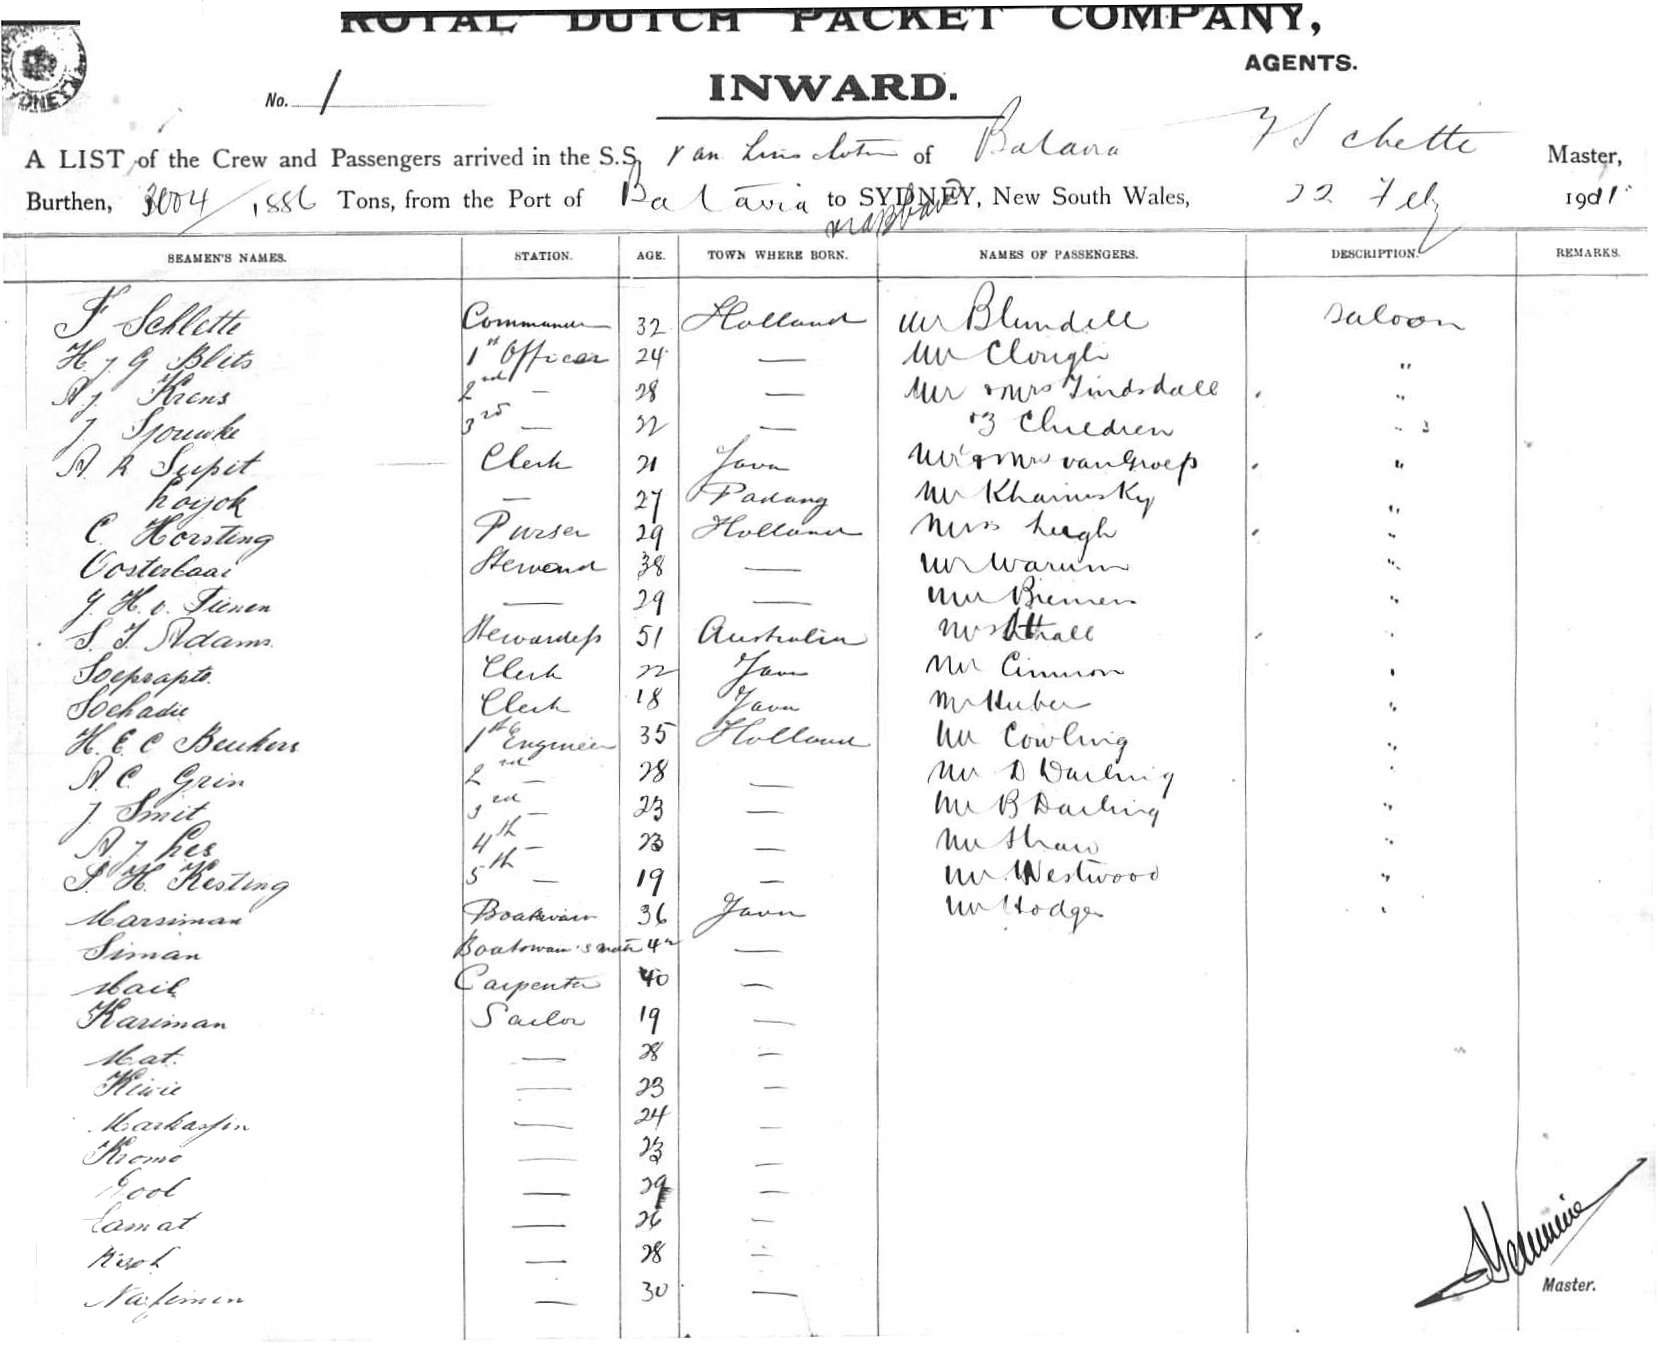 ROYAL DUTCH PACKET COMPANY,
AGENTS.
No. 1
INWARD.
A LIST of the Crew and Passengers arrived in the S.S. van Linschoten of Batavia Master,
Burthen, 3004/1886 Tons, from the Port of Batavia to SYDNEY, New South Wales, 22 Feby 1911
SEAMEN'S NAMES. STATION. AGE. TOWN WHERE BORN. NAMES OF PASSENGERS. DESCRIPTION. REMARKS.
F Schlette Commander 32 Holland Mr Blundell Saloon
H J G Blits 1st Officer 24 — Mr Clough "
A J. Krens 2nd — 28 — Mr & Mrs Tindsdall "
J 3rd — 22 — & 3 Children " 3
A. R Supit Clerk 21 Java Mr & Mrs van Groep "
Loyok — 27 Padang Mr Khainsky "
C. Horsting Purser 29 Holland Miss Leigh "
Oosterbaai Steward 38 — Mr Warum "
J. H. v. Tienen — 29 — Mr Bremen "
S. T. Adams Stewardess 51 Australia Athall "
Soeprapto Clerk 22 Java Mr Cinnion "
Sochadie Clerk 18 Java Mr Huber "
H. E. C Beukers 1st Engineer 35 Holland Mr Cowling "
A. C. Grin 2nd — 28 — Mr D Darling "
J. Smit 3rd — 23 — Mr B Darling "
A. J Les 4th — 23 — Mr Shaw "
S. H. Kesting 5th — 19 — Mr Westwood "
Marsiman Boatswain 36 Java Mr Hodges "
Siman Boatswain's mate 42 —
Mail Carpenter 40 —
Kariman Sailor 19 —
Mat. — 28 —
Kiwie — 23 —
Markassin — 24 —
Kromo — 23 —
— 29 —
Lamat — 26 —
— 28 —
— 30 —
Master.